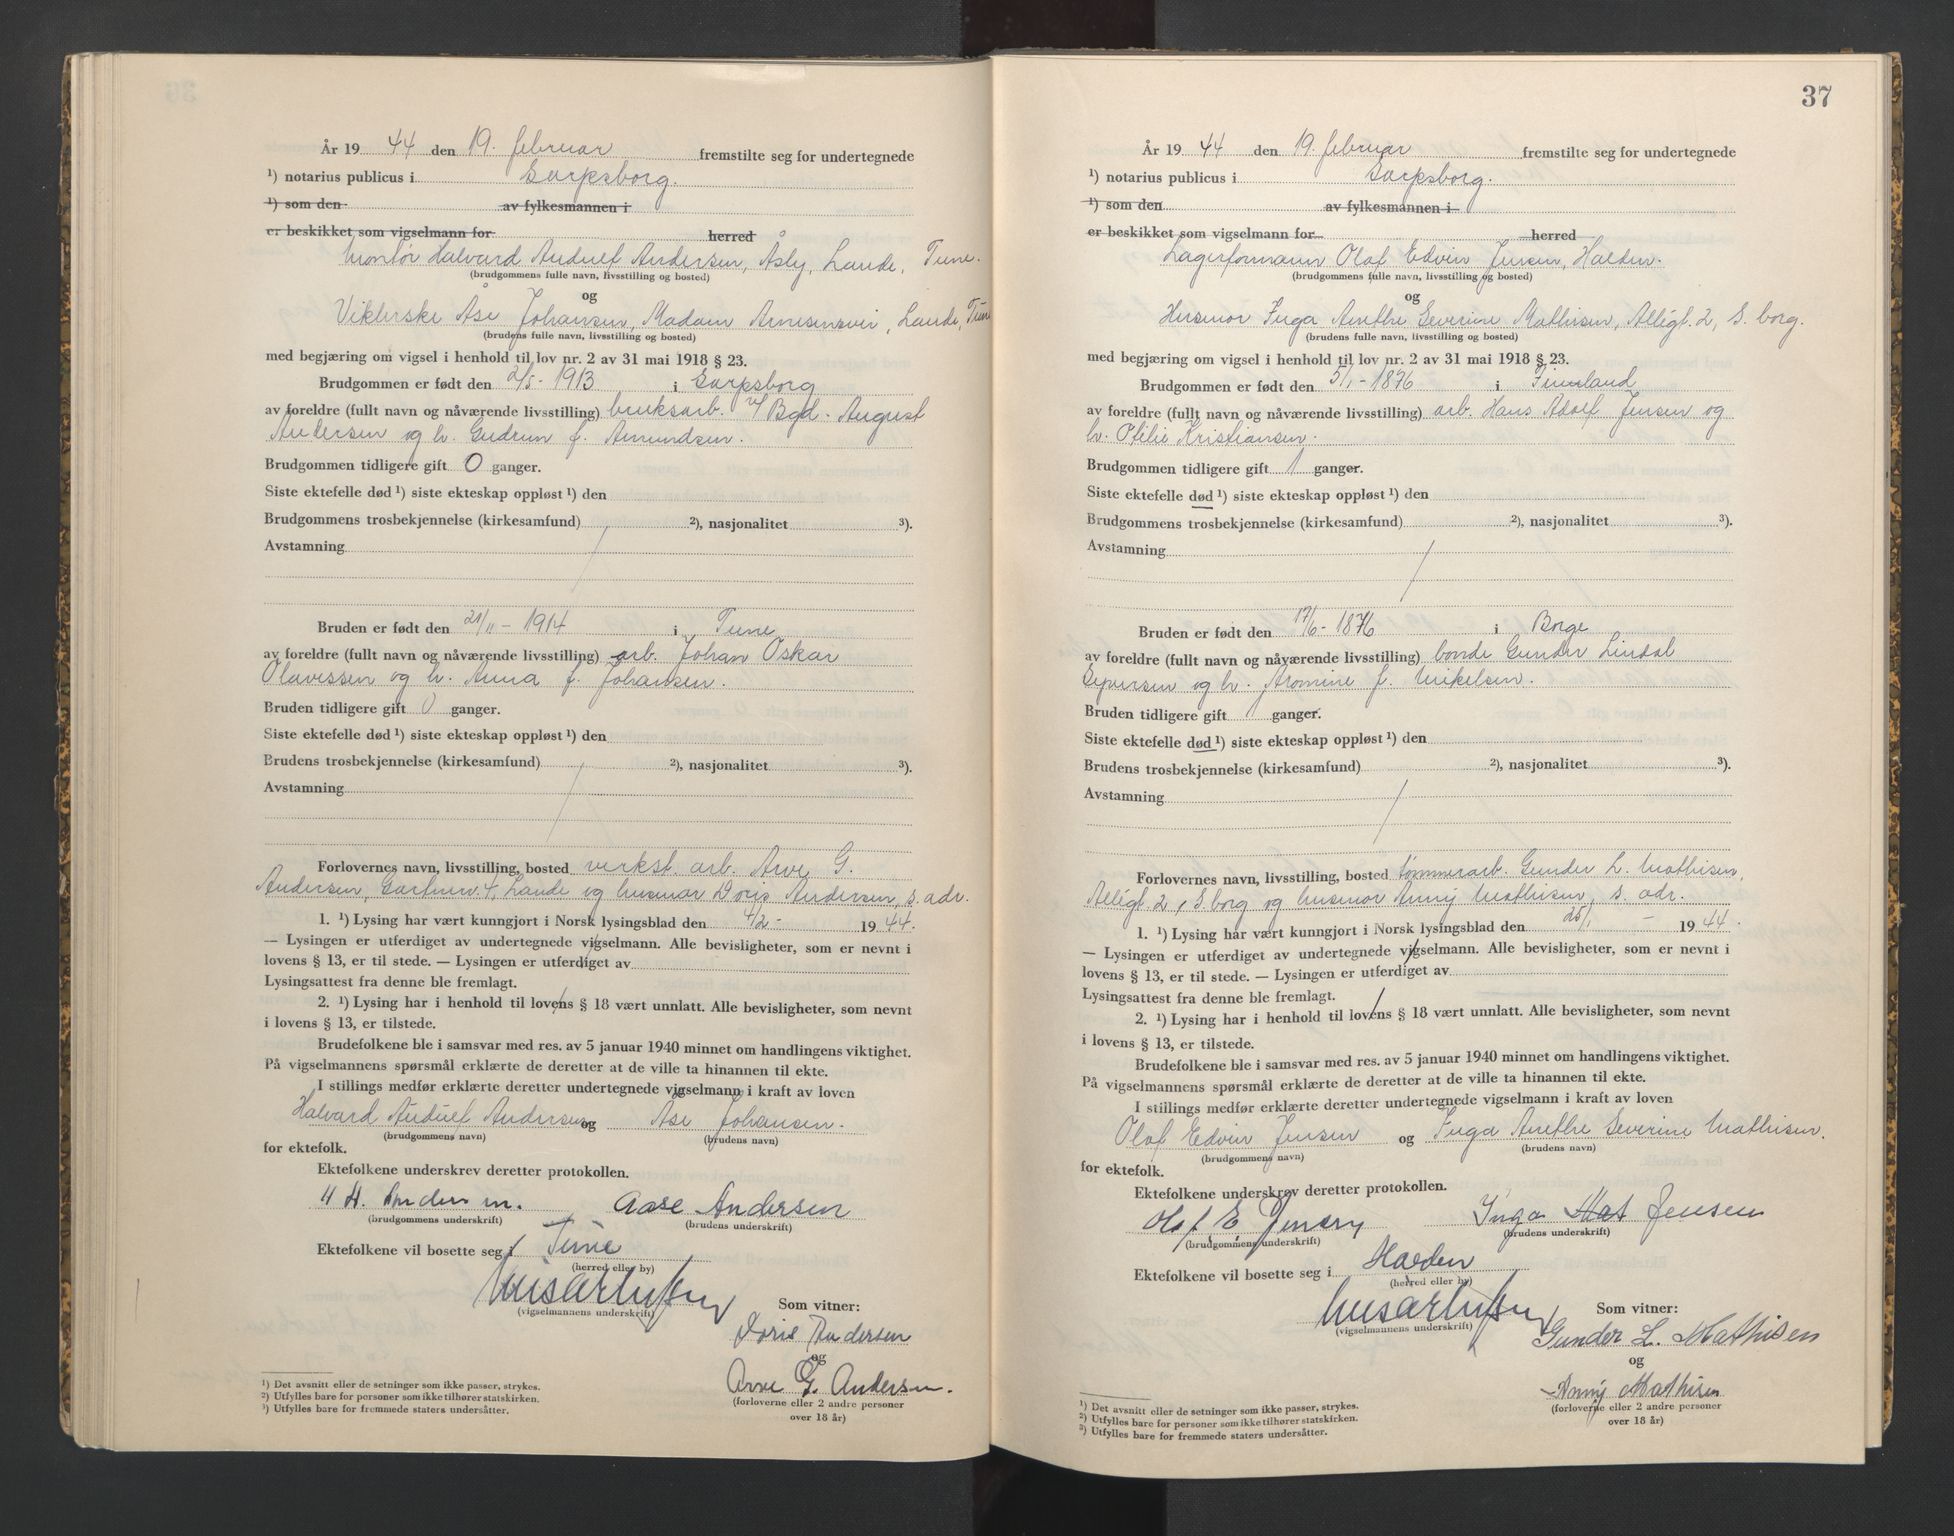 År 19 44 den 19. februar fremstilte seg for undertegnede
¹) notarius publicus i Sarpsborg.
¹) som den av fylkesmannen i
er beskikket som vigselmann for herred
Montør Halvard Audulf Andersen, Åsly, Lande, Tune.
(brudgommens fulle navn, livsstilling og bosted)
og
Viklerske Åse Johansen, Madam Arnesensvei, Lande, Tune
(brudens fulle navn, livsstilling og bosted)
med begjæring om vigsel i henhold til lov nr. 2 av 31 mai 1918 § 23.
Brudgommen er født den 2/5 - 1913 i Sarpsborg
av foreldre (fullt navn og nåværende livsstilling) bruksarb. v/ Bgd. August
Andersen og h. Gudrun f. Amundsen.
Brudgommen tidligere gift 0 ganger.
Siste ektefelle død ¹) siste ekteskap oppløst ¹) den
Brudgommens trosbekjennelse (kirkesamfund) ²), nasjonalitet ³).
Avstamning
Bruden er født den 21/11 - 1914 i Tune
av foreldre (fullt navn og nåværende livsstilling) arb. Johan Oskar
Olavessen og h. Anna f. Johansen.
Bruden tidligere gift 0 ganger.
Siste ektefelle død ¹) siste ekteskap oppløst ¹) den
Brudens trosbekjennelse (kirkesamfund) ²), nasjonalitet ³).
Avstamning
Forlovernes navn, livsstilling, bosted verkst. arb. Arve G.
Andersen, Lande og husmor Doris Andersen, s. adr.
1. ¹) Lysing har vært kunngjort i Norsk lysingsblad den 4/2 - 19 44.
— Lysingen er utferdiget av undertegnede vigselmann. Alle bevisligheter, som er nevnt i
lovens § 13, er til stede. — Lysingen er utferdiget av
Lysingsattest fra denne ble fremlagt.
2. ¹) Lysing har i henhold til lovens § 18 vært unnlatt. Alle bevisligheter, som nevnt
i lovens § 13, er tilstede.
Brudefolkene ble i samsvar med res. av 5 januar 1940 minnet om handlingens viktighet.
På vigselmannens spørsmål erklærte de deretter at de ville ta hinannen til ekte.
I stillings medfør erklærte deretter undertegnede vigselmann i kraft av loven
Halvard Audulf Andersen og Åse Johansen.
(brudgommens navn) (brudens navn)
for ektefolk.
Ektefolkene underskrev deretter protokollen.
H. A. Andersen. Aase Andersen
(brudgommens underskrift) (brudens underskrift)
Ektefolkene vil bosette seg i Tune
(herred eller by)
(vigselmannens underskrift)
Som vitner:
Doris Andersen
og
Arve G. Andersen.
(forloverne eller 2 andre personer
over 18 år)
¹) Det avsnitt eller de setninger som ikke passer, strykes.
²) Utfylles bare for personer som ikke tilhører statskirken.
³) Utfylles bare for fremmede staters undersåtter.
37
År 19 44 den 19. februar fremstilte seg for undertegnede
¹) notarius publicus i Sarpsborg.
¹) som den av fylkesmannen i
er beskikket som vigselmann for herred
Lagerformann Olaf Edvin Jensen, Halden.
(brudgommens fulle navn, livsstilling og bosted)
og
Husmor Inga Anethe Severine Mathisen, Allégt. 2, S. borg.
(brudens fulle navn, livsstilling og bosted)
med begjæring om vigsel i henhold til lov nr. 2 av 31 mai 1918 § 23.
Brudgommen er født den 5/1 - 1876 i Finnland
av foreldre (fullt navn og nåværende livsstilling) arb. Hans Adolf Jensen og
h. Otilie Kristiansen.
Brudgommen tidligere gift 1 ganger.
Siste ektefelle død ¹) siste ekteskap oppløst ¹) den
Brudgommens trosbekjennelse (kirkesamfund) ²), nasjonalitet ³).
Avstamning
Bruden er født den 17/6 - 1876 i Borge
av foreldre (fullt navn og nåværende livsstilling) bonde Gunder Lindal
Syversen og h. Aromine f. Mikelsen.
Bruden tidligere gift 1 ganger.
Siste ektefelle død ¹) siste ekteskap oppløst ¹) den
Brudens trosbekjennelse (kirkesamfund) ²), nasjonalitet ³).
Avstamning
Forlovernes navn, livsstilling, bosted tømmerarb. Gunder L. Mathisen,
Allégt. 2, S.borg og husmor Anny Mathisen, s. adr.
1. ¹) Lysing har vært kunngjort i Norsk lysingsblad den 25/1 - 19 44.
— Lysingen er utferdiget av undertegnede vigselmann. Alle bevisligheter, som er nevnt i
lovens § 13, er til stede. — Lysingen er utferdiget av
Lysingsattest fra denne ble fremlagt.
2. ¹) Lysing har i henhold til lovens § 18 vært unnlatt. Alle bevisligheter, som nevnt
i lovens § 13, er tilstede.
Brudefolkene ble i samsvar med res. av 5 januar 1940 minnet om handlingens viktighet.
På vigselmannens spørsmål erklærte de deretter at de ville ta hinannen til ekte.
I stillings medfør erklærte deretter undertegnede vigselmann i kraft av loven
Olaf Edvin Jensen og Inga Anethe Severine Mathisen.
(brudgommens navn) (brudens navn)
for ektefolk.
Ektefolkene underskrev deretter protokollen.
Olaf E. Jensen Inga Mat Jensen
(brudgommens underskrift) (brudens underskrift)
Ektefolkene vil bosette seg i Halden
(herred eller by)
(vigselmannens underskrift)
Som vitner:
Gunder L. Mathisen
og
Anny Mathisen
(forloverne eller 2 andre personer
over 18 år)
¹) Det avsnitt eller de setninger som ikke passer, strykes.
²) Utfylles bare for personer som ikke tilhører statskirken.
³) Utfylles bare for fremmede staters undersåtter.